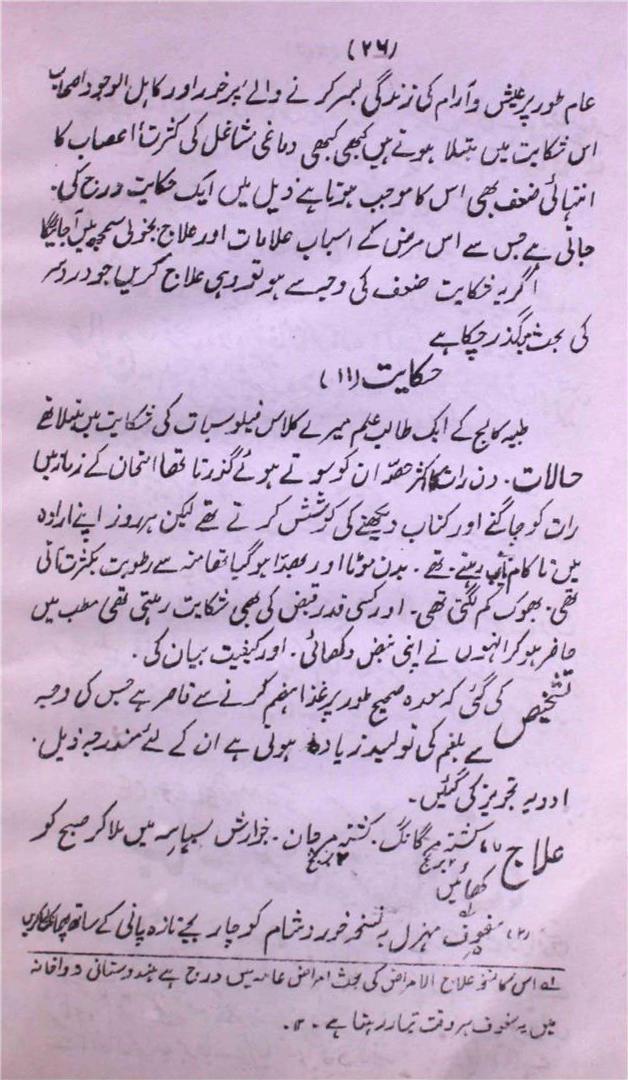 (۲۶)
عام طور پر عیش و آرام کی زندگی بسر کرنے والے پرخور اور کاہل الوجود اصحاب
اس شکایت میں مبتلا ہوتے ہیں کبھی کبھی دماغی مشاغل کی کثرت اعصاب کا
انتہائی ضعف بھی اس کا موجب ہوتا ہے ذیل میں ایک حکایت درج کی
جاتی ہے جس سے اس مرض کے اسباب علامات اور علاج بخوبی سمجھ میں آجائیگا
اگر یہ شکایت ضعف کی وجہ سے ہو تو وہی علاج کریں جو درد سر
کی بحث میں گذر چکا ہے
حکایت (۱۱)
طبیہ کالج کے ایک طالب علم میرے کلاس فیلو سبات کی شکایت میں مبتلا تھے
حالات۔ دن رات کا اکثر حصہ ان کو سوتے ہوئے گذرتا تھا امتحان کے زمانہ میں
رات کو جاگنے اور کتاب دیکھنے کی کوشش کرتے تھے لیکن ہر روز اپنے ارادہ
میں ناکام رہتے تھے۔ بدن موٹا اور بھدا ہو گیا تھا منہ سے رطوبت بکثرت آتی
تھی۔ بھوک کم لگتی تھی۔ اور کسی قدر قبض کی بھی شکایت رہتی تھی مطب میں
حاضر ہو کر انہوں نے اپنی نبض دکھائی۔ اور کیفیت بیان کی۔
تشخیص کی گئی کہ معدہ صحیح طور پر غذا ہضم کرنے سے قاصر ہے جس کی وجہ
سے بلغم کی تولید زیادہ ہوتی ہے ان کے لئے مندرجہ ذیل۔
ادویہ تجویز کی گئیں۔
علاج (۱) کشتہ مرگانگ۔ کشتہ مرجان۔ جوارش بسباسہ میں ملا کر صبح کو
۲ برنج ۲ برنج
کھائیں
(۲) سفوف مہزل بہ نسخہ خورد شام کو چار بجے تازہ پانی کے ساتھ
لہ اس کا نسخہ علاج الامراض کی بحث امراض عامہ میں درج ہے ہندوستانی دواخانہ
میں یہ سفوف ہر وقت تیار رہتا ہے۔ ۱۲۔